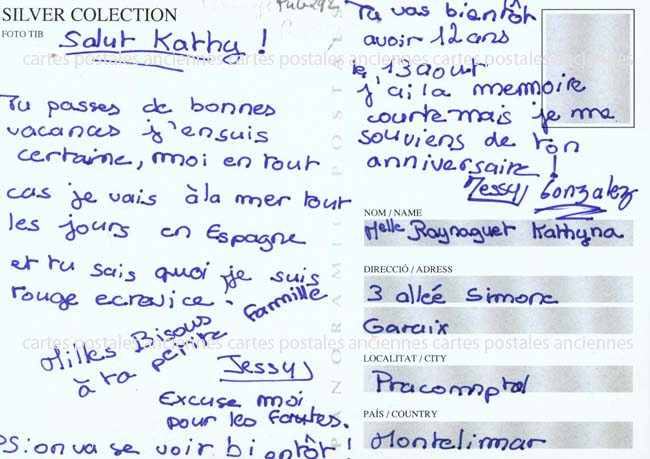 SILVER COLECTION
FOTO TIB
Salut Kathy !
Tu passes de bonnes
vacances j'ensuis
certaine, moi en tout
cas je vais à la mer tout
les jours en Espagne
et tu sais quoi je suis
rouge ecrevice.
Milles Bisous
à ta petite
fammille
Jessy
Excuse moi
pour les fautes.
PS: on va se voir bientôt !
PANORAMIC POSTALS
Tu vas bientôt
avoir 12 ans
le 13 aout
j'ai la memoire
courte mais je me
souviens de ton
anniversaire !
Jessy Gonzalez
NOM / NAME
Melle Raynaguet Kathyna
DIRECCIÓ / ADRESS
3 alleé Simone
Garaix
LOCALITAT / CITY
Pracomptal
PAÍS / COUNTRY
Montelimar
cartes postales anciennes cartes postales anciennes cartes postales anciennes
cartes postales anciennes cartes postales anciennes cartes postales anciennes